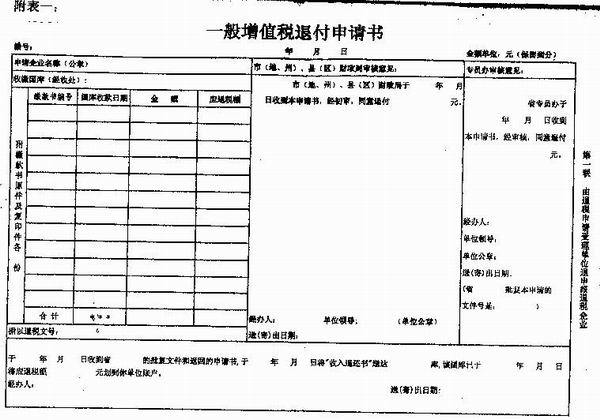 附表一：
一般增值税退付申请书
编号： 年 月 日 金额单位：元（保留角分）
申请企业名称（公章） 市（地、州）、县（区）财政局审核意见： 专员办审核意见：
收缴国库（经收处）：
缴款书编号 国库收款日期 金 额 应退税额
市（地、州）、县（区）财政局于 年 月
日收到本申请书，经初审，同意退付 元。
省专员办于
年 月 日收到
本申请书，经审核，同意退付
元。
附缴款书原件及复印件各 份
经办人：
单位领导：
单位公章：
送（寄）出日期：
（省 批复本申请的
文件号是： ）
合 计
经办人： 单位领导： （单位公章）
送（寄）出日期：
所以退税文号：
于 年 月 日收到省 的批复文件和返回的申请书，于 年 月 日将“收入退还书”送达 库，该国库已于 年 月 日
将应退税额 元划到你单位账户。
经办人： 送（寄）出日期：
第二联 由退税申请受理单位退申报退税企业